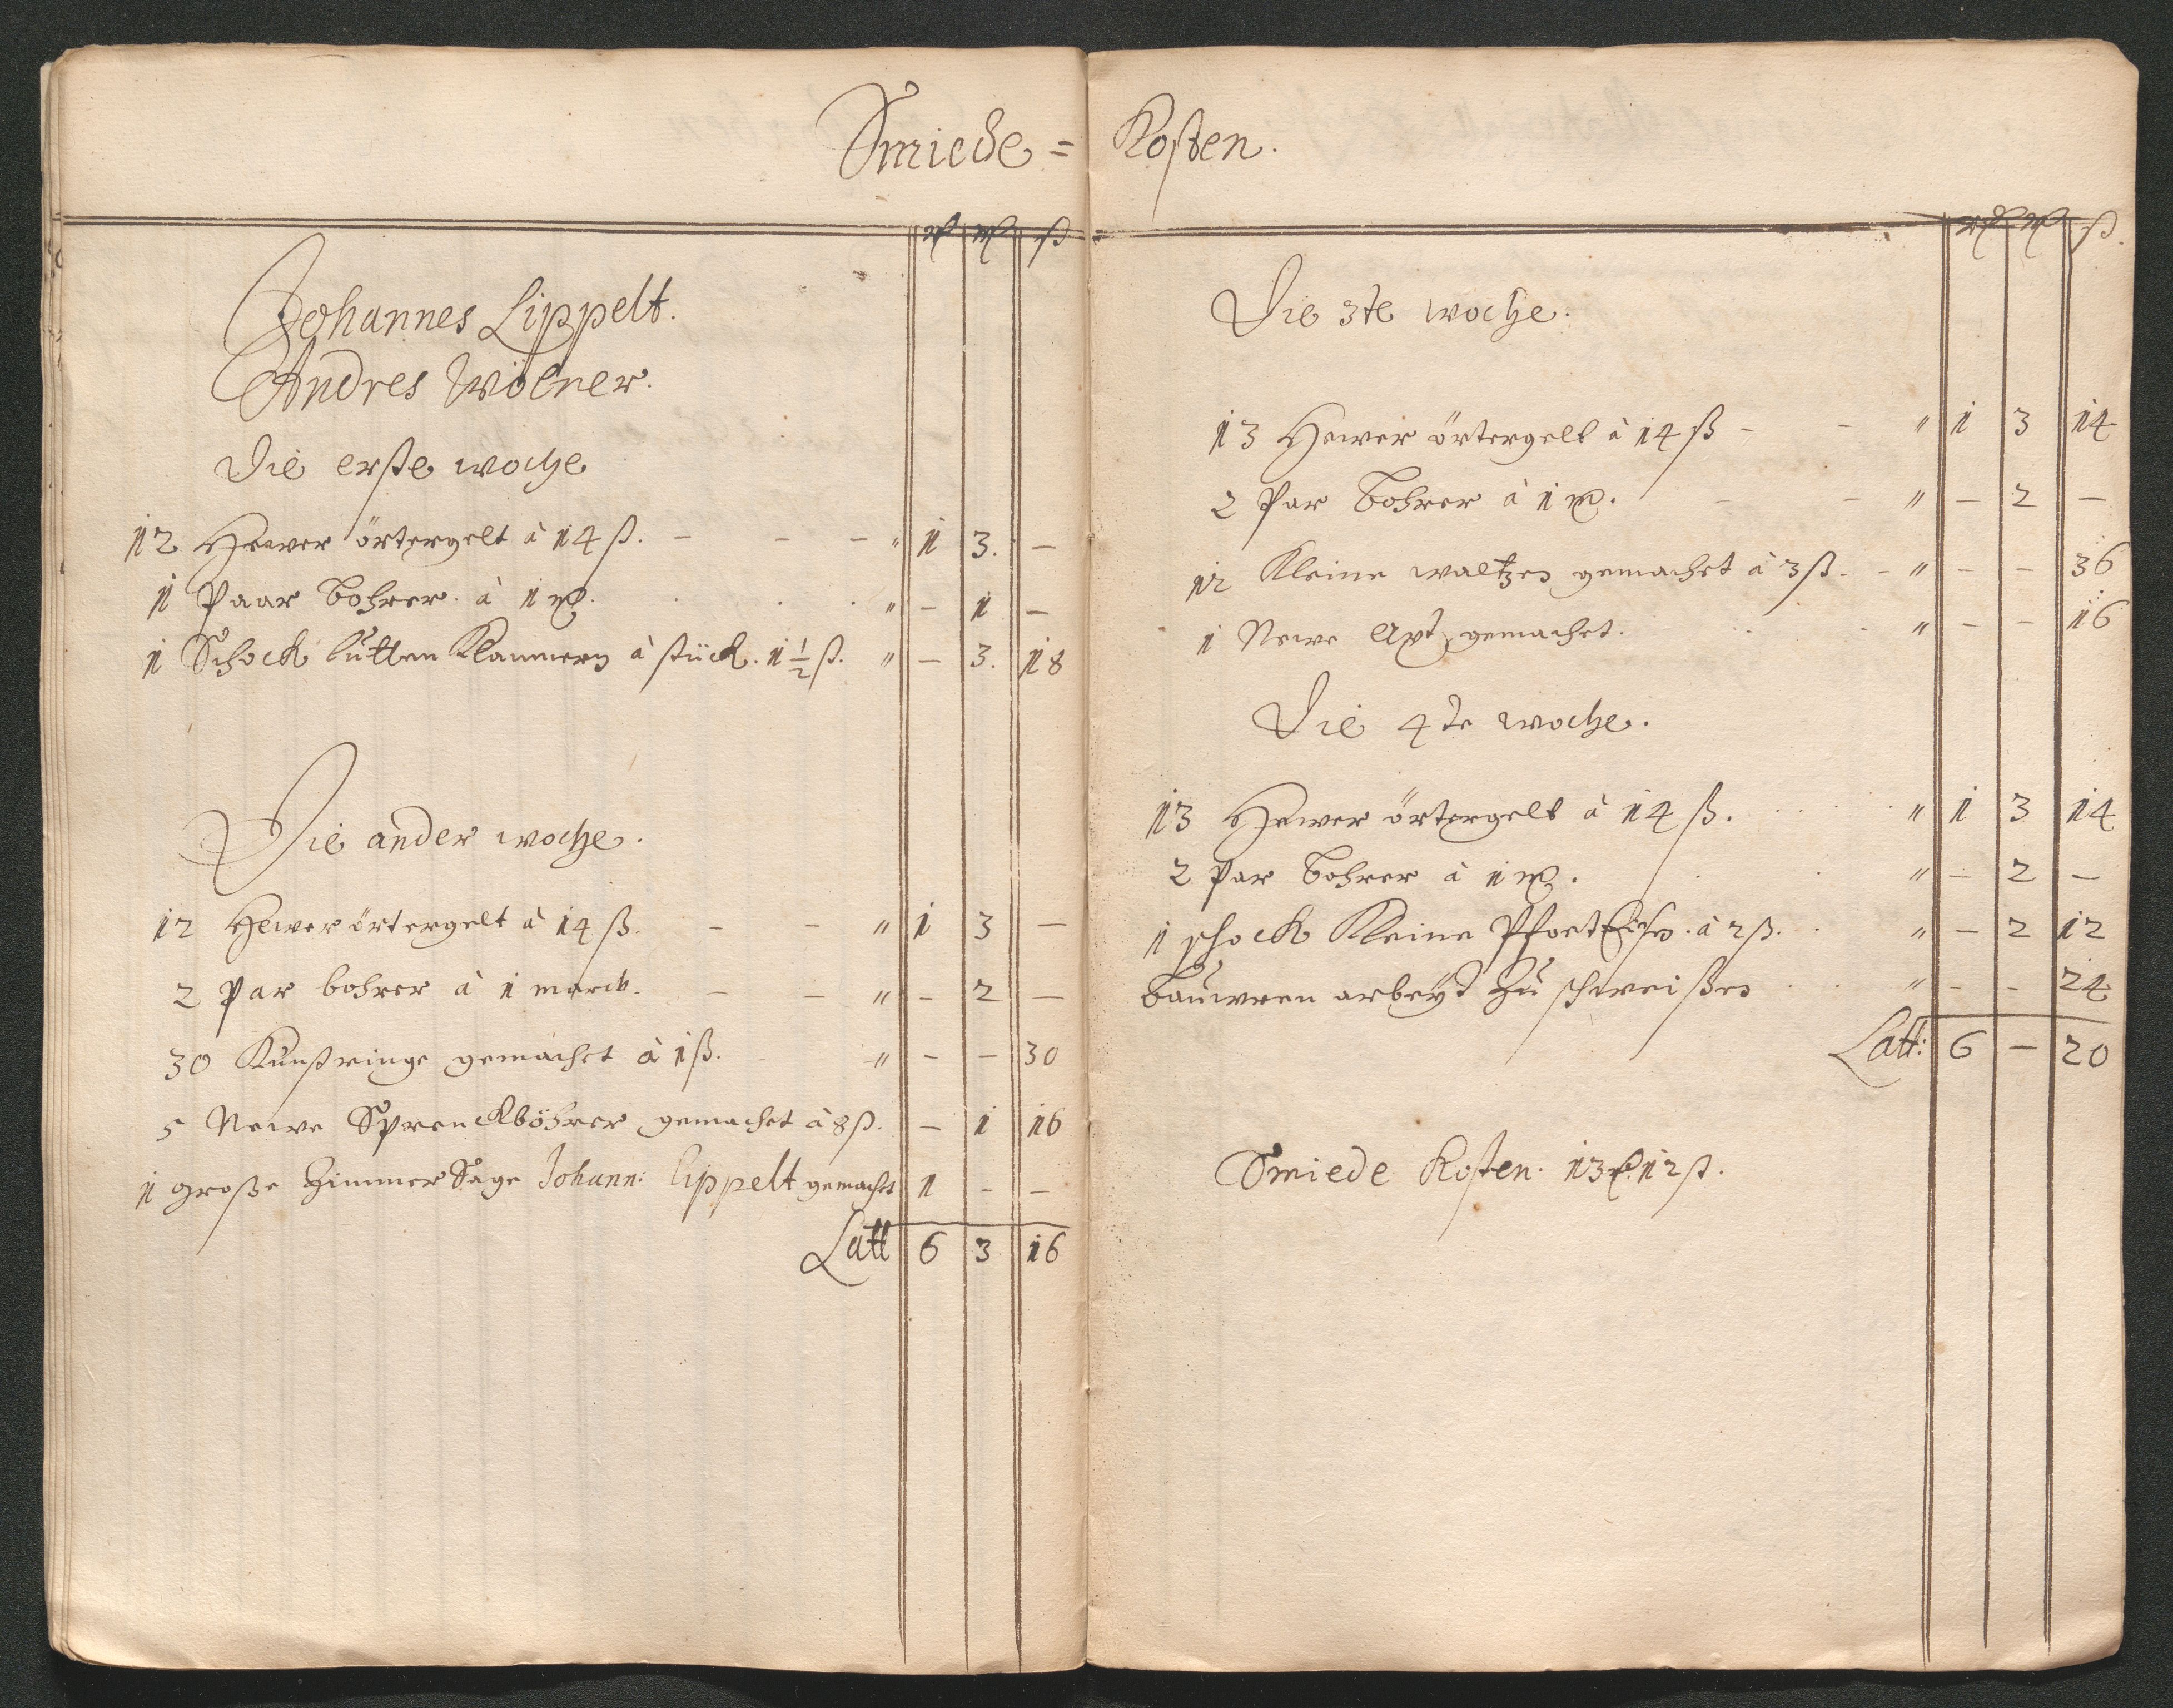 Smiede = Kosten.
Johannes Lippelt.
Andres Wölner.
Die erste woche
12 Hewer örtergelt à 14 ß. - - - " 1 3. -
1 Paar Bohrer. à 1 mß. " - 1 -
1 Schock lutten Klammern à stück. 1 1/2 ß. " - 3. 18
Die ander woche.
12 Hewer örtergelt à 14 ß. - - " 1 3 -
2 Par bohrer à 1 marck. - - " - 2 -
30 Kunstringe gemacht à 1 ß. " - - 30
5 Newe Sprenckböhrer gemachet à 8 ß. - 1 16
1 große Zimmer Sage Johann: Lippelt gemacht 1 - -
Latt 6 3 16
Die 3te woche.
13 Hewer örtergelt à 14 ß - - " 1 3 14
2 Par Bohrer à 1 m. - - " - 2 -
12 Kleine waltzen gemachet à 3 ß. - " - - 36
1 Newe Axt gemachet. " - - 16
Die 4te woche.
13 Hewer örtergelt à 14 ß. " 1 3 14
2 Par Bohrer à 1 m. " - 2 -
1 schock Kleine à 2 ß. " - 2 12
arbeyt zu schweißen " - - 24
Latt: 6 - 20
Smiede Kosten. 13 12 ß.